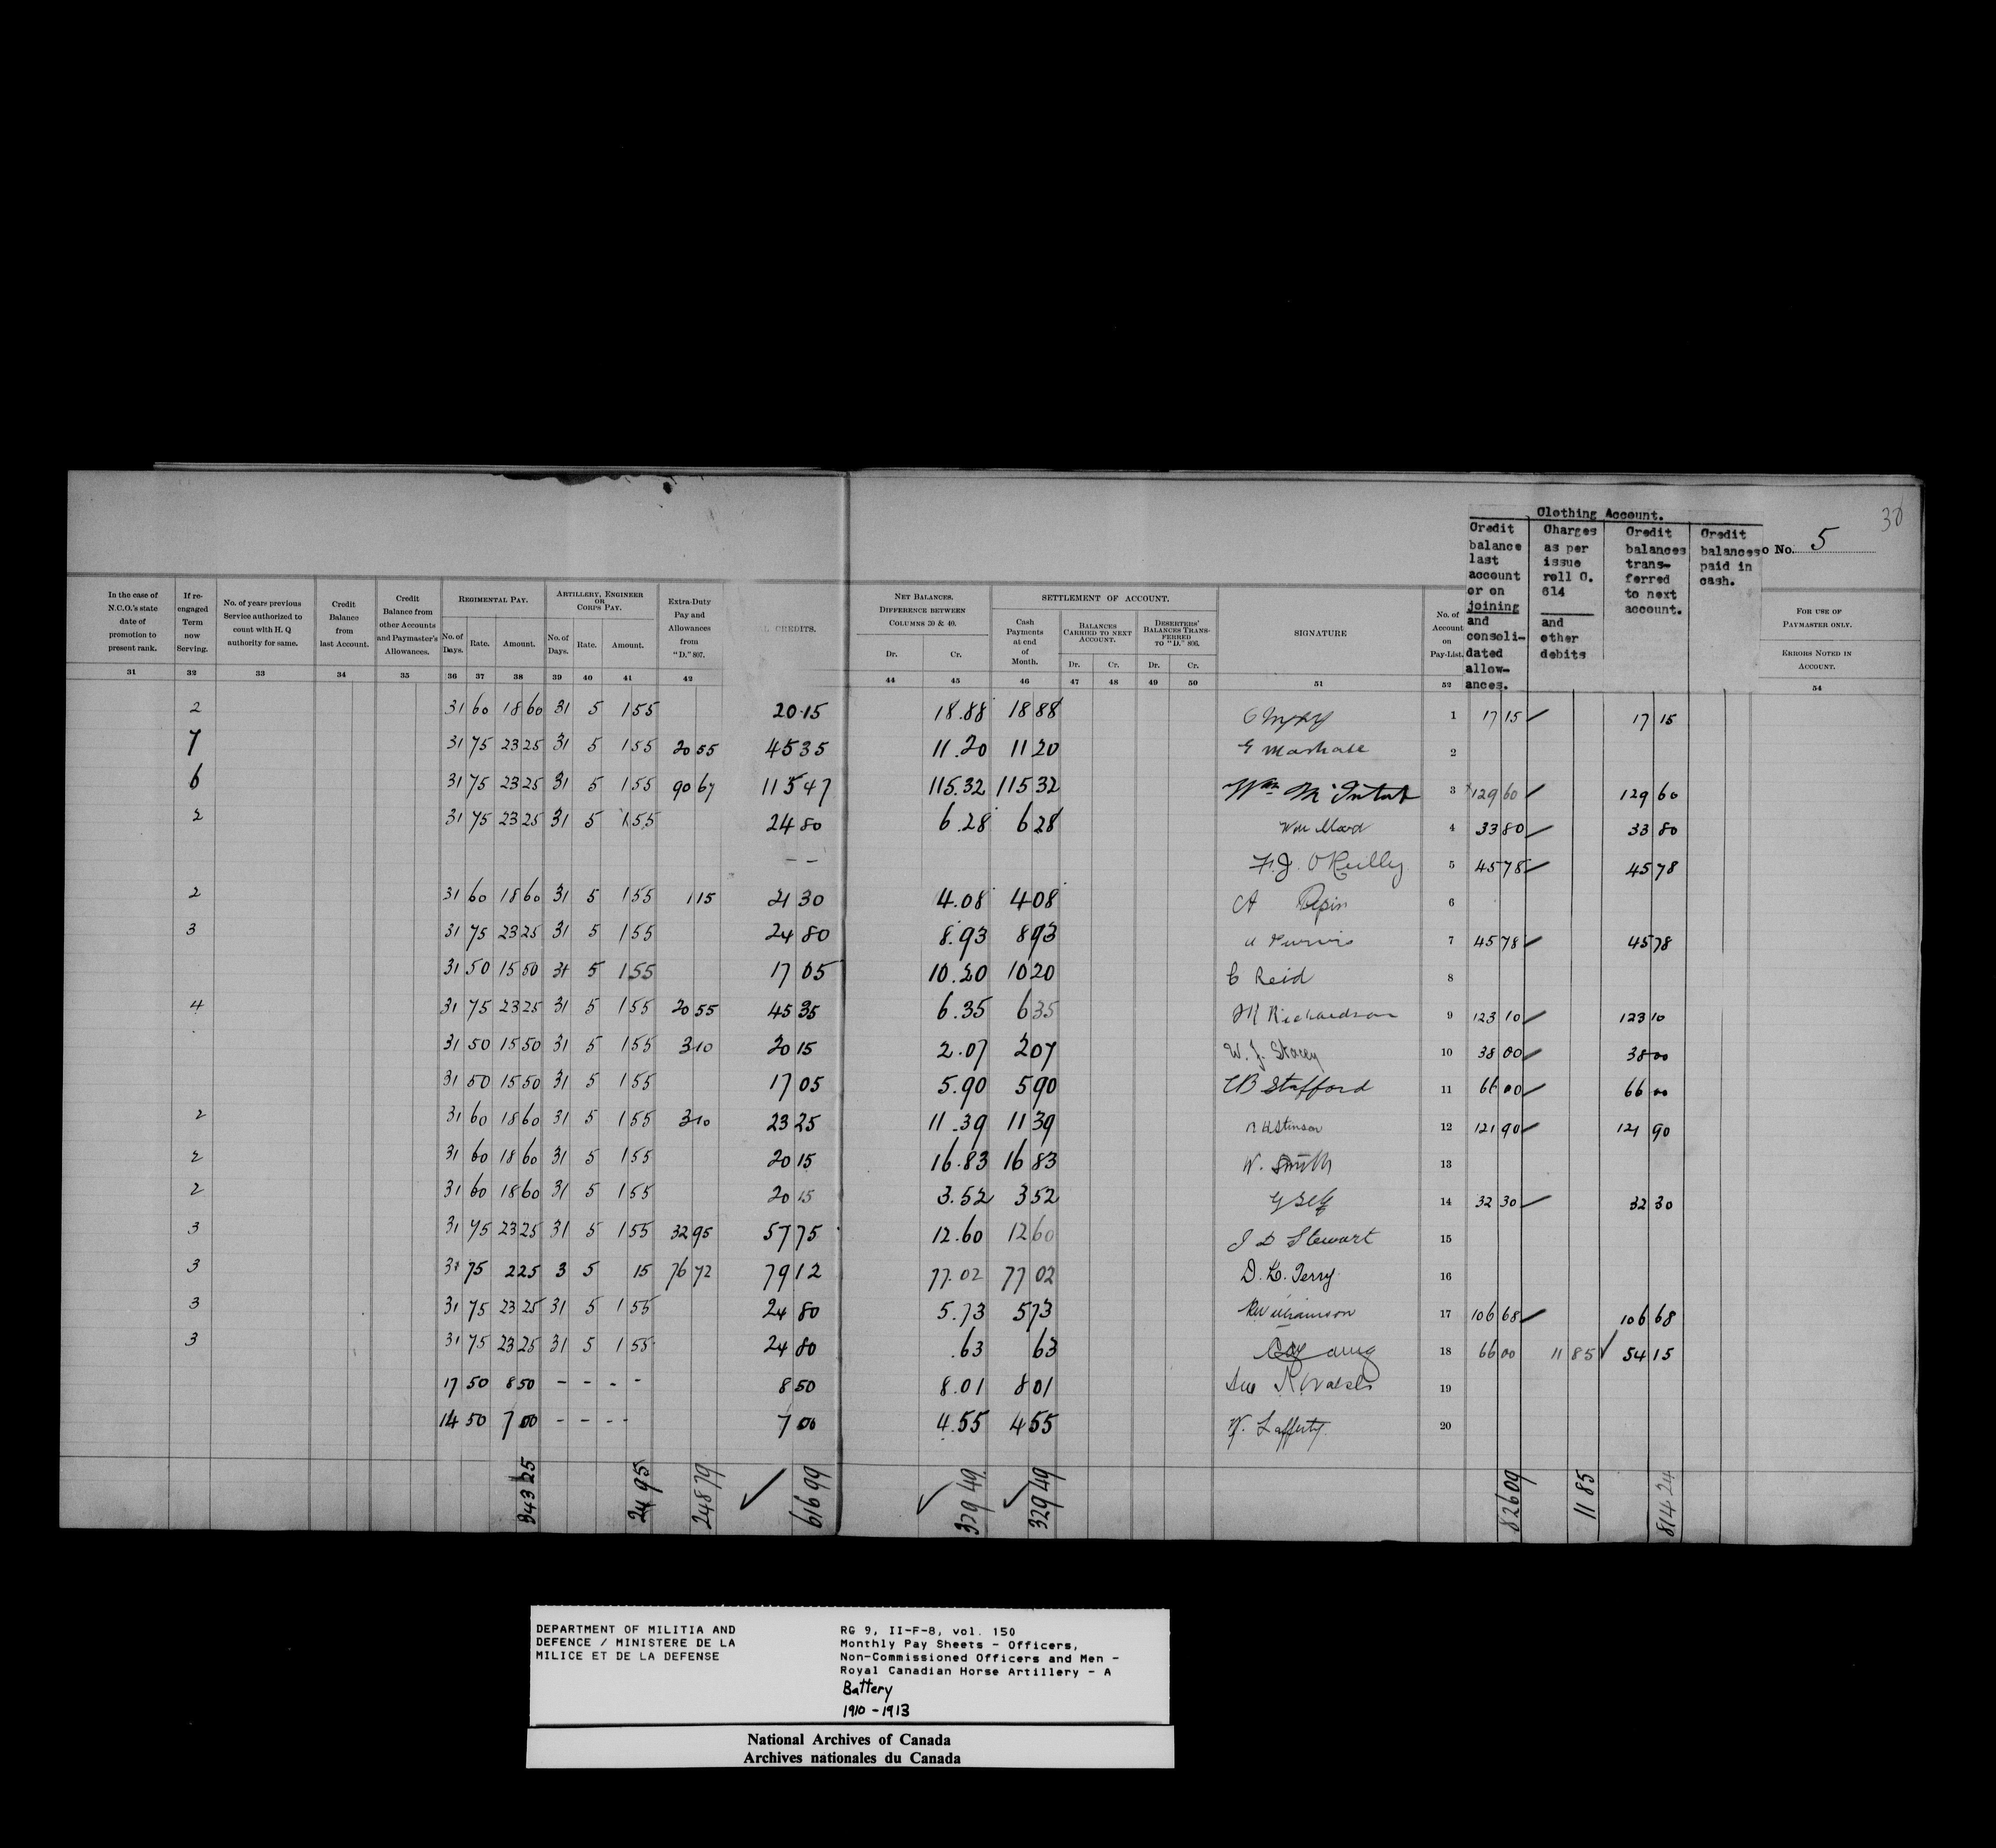 30
Clothing Account.
Credit balance last account or on joining and consoli- dated allow- ances.
Charges as per issue roll C. 614 and other debits
Credit balances trans- ferred to next account.
Credit balances paid in cash.
o No. 5
In the case of N.C.O.'s state date of promotion to present rank.
If re- engaged Term now Serving.
No. of years previous Service authorized to count with H. Q authority for same.
Credit Balance from last Account.
Credit Balance from other Accounts and Paymaster's Allowances.
REGIMENTAL PAY.
No. of Days. Rate. Amount.
ARTILLERY, ENGINEER OR CORPS PAY.
No. of Days. Rate. Amount.
Extra-Duty Pay and Allowances from "D." 807.
L CREDITS.
NET BALANCES. DIFFERENCE BETWEEN COLUMNS 30 & 40.
Dr. Cr.
SETTLEMENT OF ACCOUNT.
Cash Payments at end of Month.
BALANCES CARRIED TO NEXT ACCOUNT.
Dr. Cr.
DESERTERS' BALANCES TRANS- FERRED TO "D." 806.
Dr. Cr.
SIGNATURE
No. of Account on Pay-List.
FOR USE OF PAYMASTER ONLY.
ERRORS NOTED IN ACCOUNT.
31 32 33 34 35 36 37 38 39 40 41 42 44 45 46 47 48 49 50 51 52 54
2 31 60 18 60 31 5 1 55 20.15 18.88 18 88 1 17 15 17 15
7 31 75 23 25 31 5 1 55 20 55 45 35 11.20 11 20 G Marshall 2
6 31 75 23 25 31 5 1 55 90 67 115 47 115.32 115 32 Wm McIntosh 3 129 60 129 60
2 31 75 23 25 31 5 1 55 24 80 6.28 6 28 Wm Mood 4 33 80 33 80
– – F.J. O'Reilly 5 45 78 45 78
2 31 60 18 60 31 5 1 55 1 15 21 30 4.08 4 08 A Pepin 6
3 31 75 23 25 31 5 1 55 24 80 8.93 8 93 A Purvis 7 45 78 45 78
31 50 15 50 31 5 1 55 17 05 10.20 10 20 C Reid 8
4 31 75 23 25 31 5 1 55 20 55 45 35 6.35 6 35 Richardson 9 123 10 123 10
31 50 15 50 31 5 1 55 3 10 20 15 2.07 2 07 W. J. Stacey 10 38 00 38 00
31 50 15 50 31 5 1 55 17 05 5.90 5 90 CB Stafford 11 66 00 66 00
2 31 60 18 60 31 5 1 55 3 10 23 25 11.39 11 39 Stinson 12 121 90 121 90
2 31 60 18 60 31 5 1 55 20 15 16.83 16 83 W. Smith 13
2 31 60 18 60 31 5 1 55 20 15 3.52 3 52 G Self 14 32 30 32 30
3 31 75 23 25 31 5 1 55 32 95 57 75 12.60 12 60 J D Stewart 15
3 3 75 2 25 3 5 15 76 72 79 12 77.02 77 02 D. L. Terry 16
3 31 75 23 25 31 5 1 55 24 80 5.73 5 73 R Williamson 17 106 68 106 68
3 31 75 23 25 31 5 1 55 24 80 .63 63 18 66 00 11 85 54 15
17 50 8 50 – – – – 8 50 8.01 8 01 19
14 50 7 00 – – – – 7 00 4.55 4 55 W. Lafferty 20
343 25 24 95 248 79 616 99 329 49 329 49 826 09 11 85 814 24
DEPARTMENT OF MILITIA AND
DEFENCE / MINISTERE DE LA
MILICE ET DE LA DEFENSE
RG 9, II-F-8, vol. 150
Monthly Pay Sheets - Officers,
Non-Commissioned Officers and Men -
Royal Canadian Horse Artillery - A
Battery
1910 - 1913
National Archives of Canada
Archives nationales du Canada